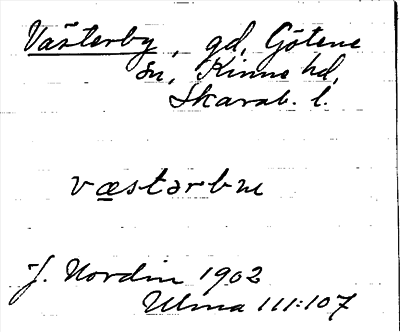 Västerby, gd, Götene
sn, Kinne hd,
Skarab. l.
J. Nordin 1902
Ulma 111:107